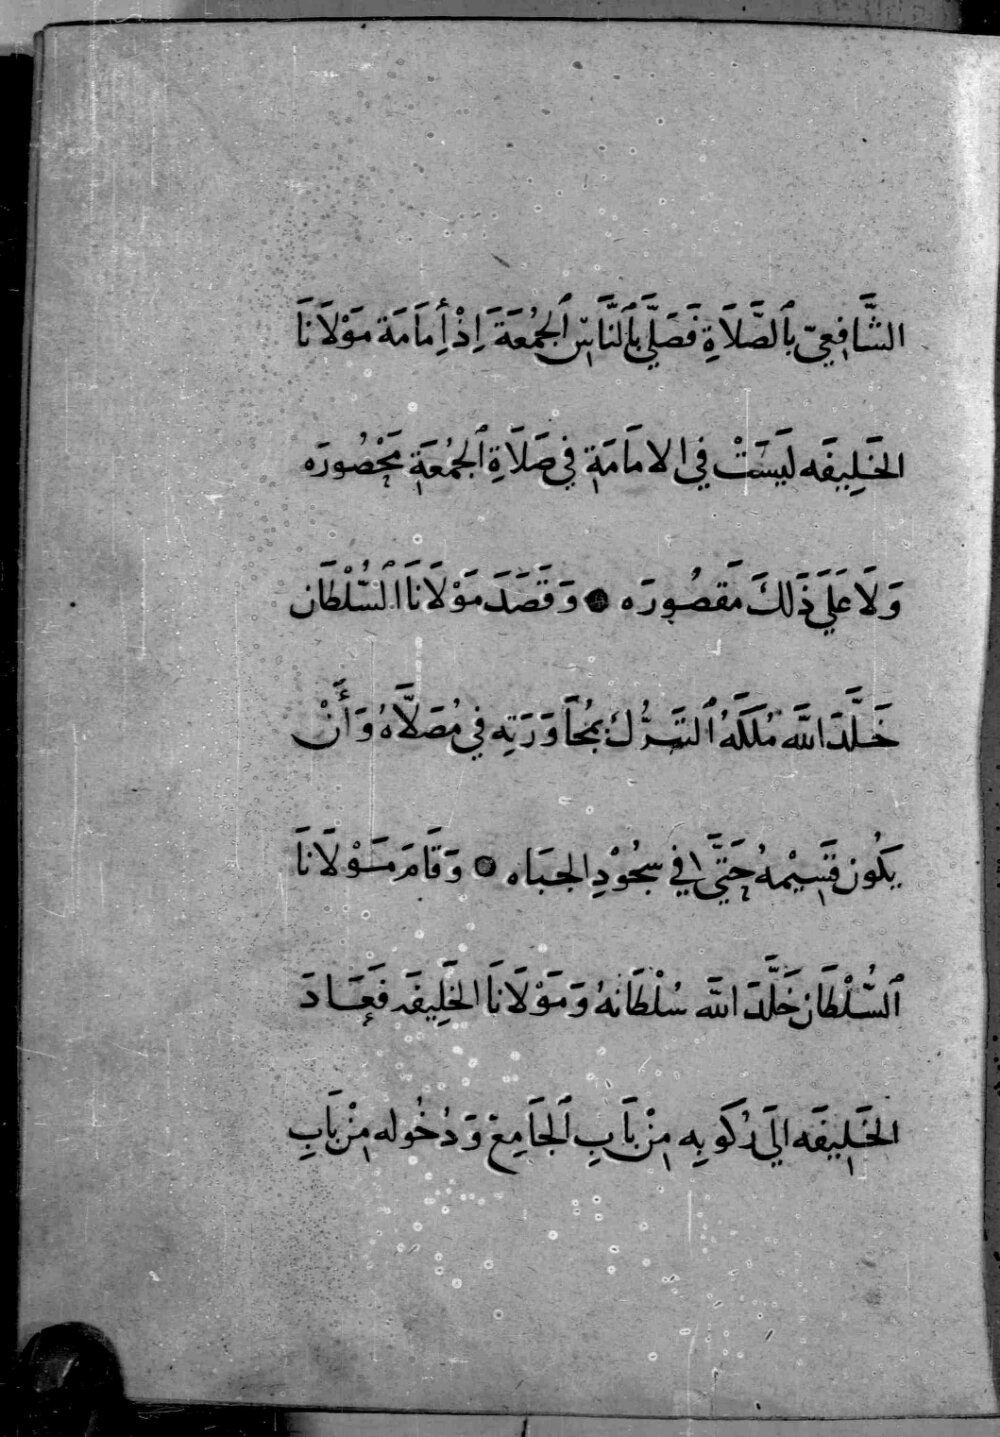 الشَّافِعِيّ بِالصَّلَاَةِ فَصَلَّي بِالنَّاسِ الْجُمُعَةَ اِذْ أِمَامَة مَوْلَانَا
الخَلِيفَه لَيسَتْ فِي الامَامَةِ فِي صَلَاَةِ الجُمُعَةِ مَحْصُورَه
وَلَا عَلَي ذَلِكَ مَقصُورَه ● وَقَصَدَ مَوْلَانَا السُّلْطَان
خَلَّدَ اللَّه مُلكَهُ التَبَرُّكَ بِمُجَاوَرَتِهِ فِي مُصَلَّاهُ وَأَنْ
يَكُون قَسِيْمهُ حَتَّي في سُجُوْدِ الجبَاه ● وَقَامَ مَوْلَانَا
السُّلْطَان خَلَّدَ اللَّه سُلْطَانهُ وَمَوْلَانَا الخَلِيفَه فَعَادَ
الخَلِيفَه الَي رُكَوبِه مِنْ بَابِ الجَامِع وَدُخُوله مِنْ بَابِ